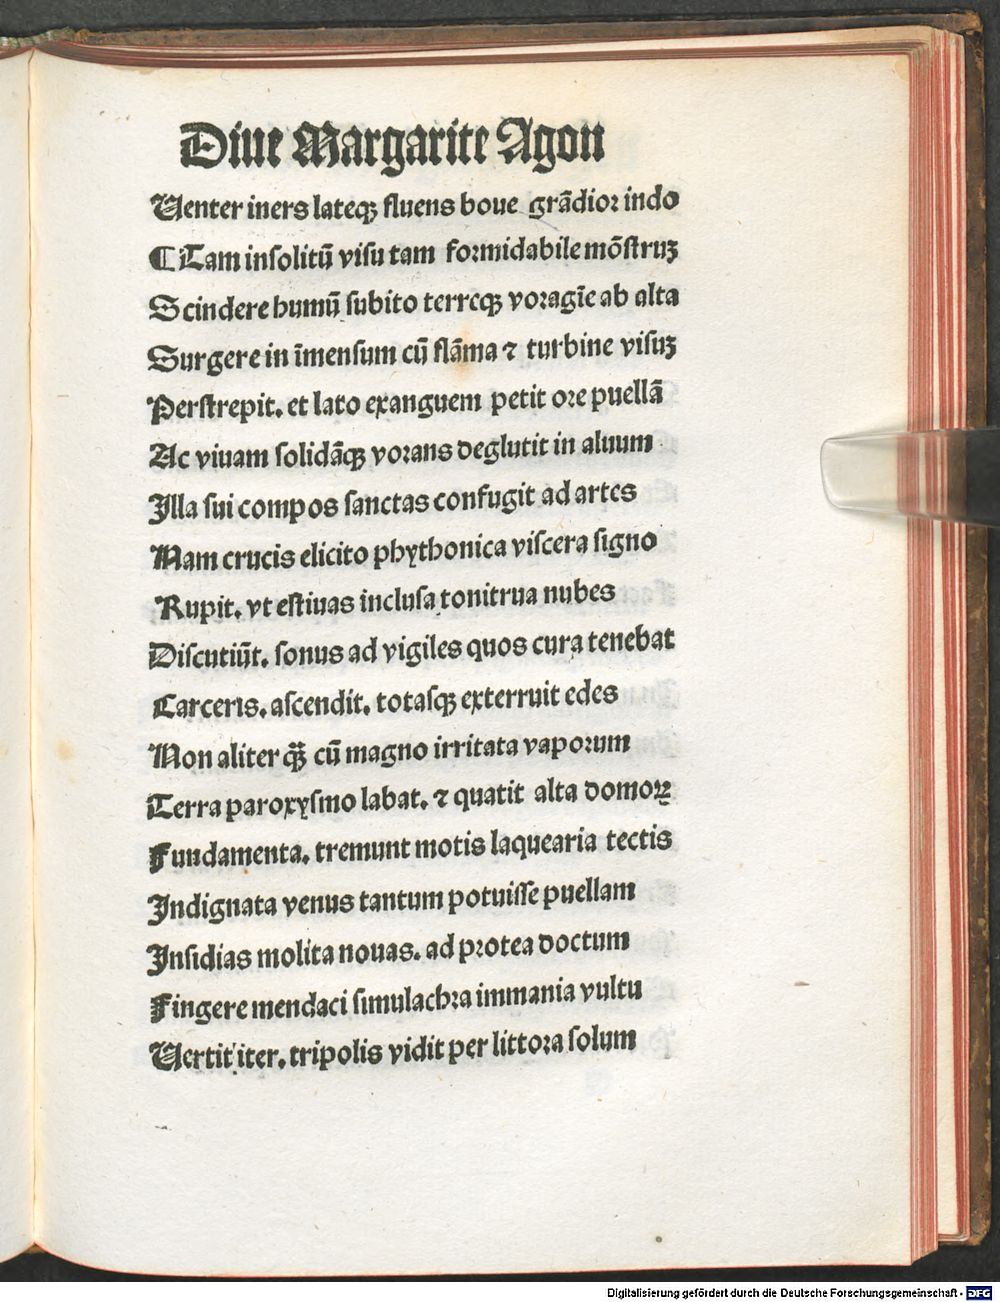 Diue Margarite Agon
Uenter iners lateqꝫ fluens boue grãdior indo
¶ Tam insolitũ visu tam formidabile mõstruꝫ
Scindere humũ subito terreqꝫ voragĩe ab alta
Surgere in ĩmensum cũ flãma ⁊ turbine visuꝫ
Perstrepit. et lato exanguem petit ore puellã
Ac viuam solidãqꝫ vorans deglutit in aluum
Illa sui compos sanctas confugit ad artes
Nam crucis elicito phythonica viscera signo
Rupit. vt estiuas inclusa tonitrua nubes
Discutiũt. sonus ad vigiles quos cura tenebat
Carceris. ascendit. totasqꝫ exterruit edes
Non aliter q̃ꝫ cũ magno irritata vaporum
Terra paroxysmo labat. ⁊ quatit alta domoꝝ
Fundamenta. tremunt motis laquearia tectis
Indignata venus tantum potuisse puellam
Insidias molita nouas. ad protea doctum
Fingere mendaci simulachra immania vultu
Uertit iter. tripolis vidit per littora solum
Digitalisierung gefördert durch die Deutsche Forschungsgemeinschaft - DFG